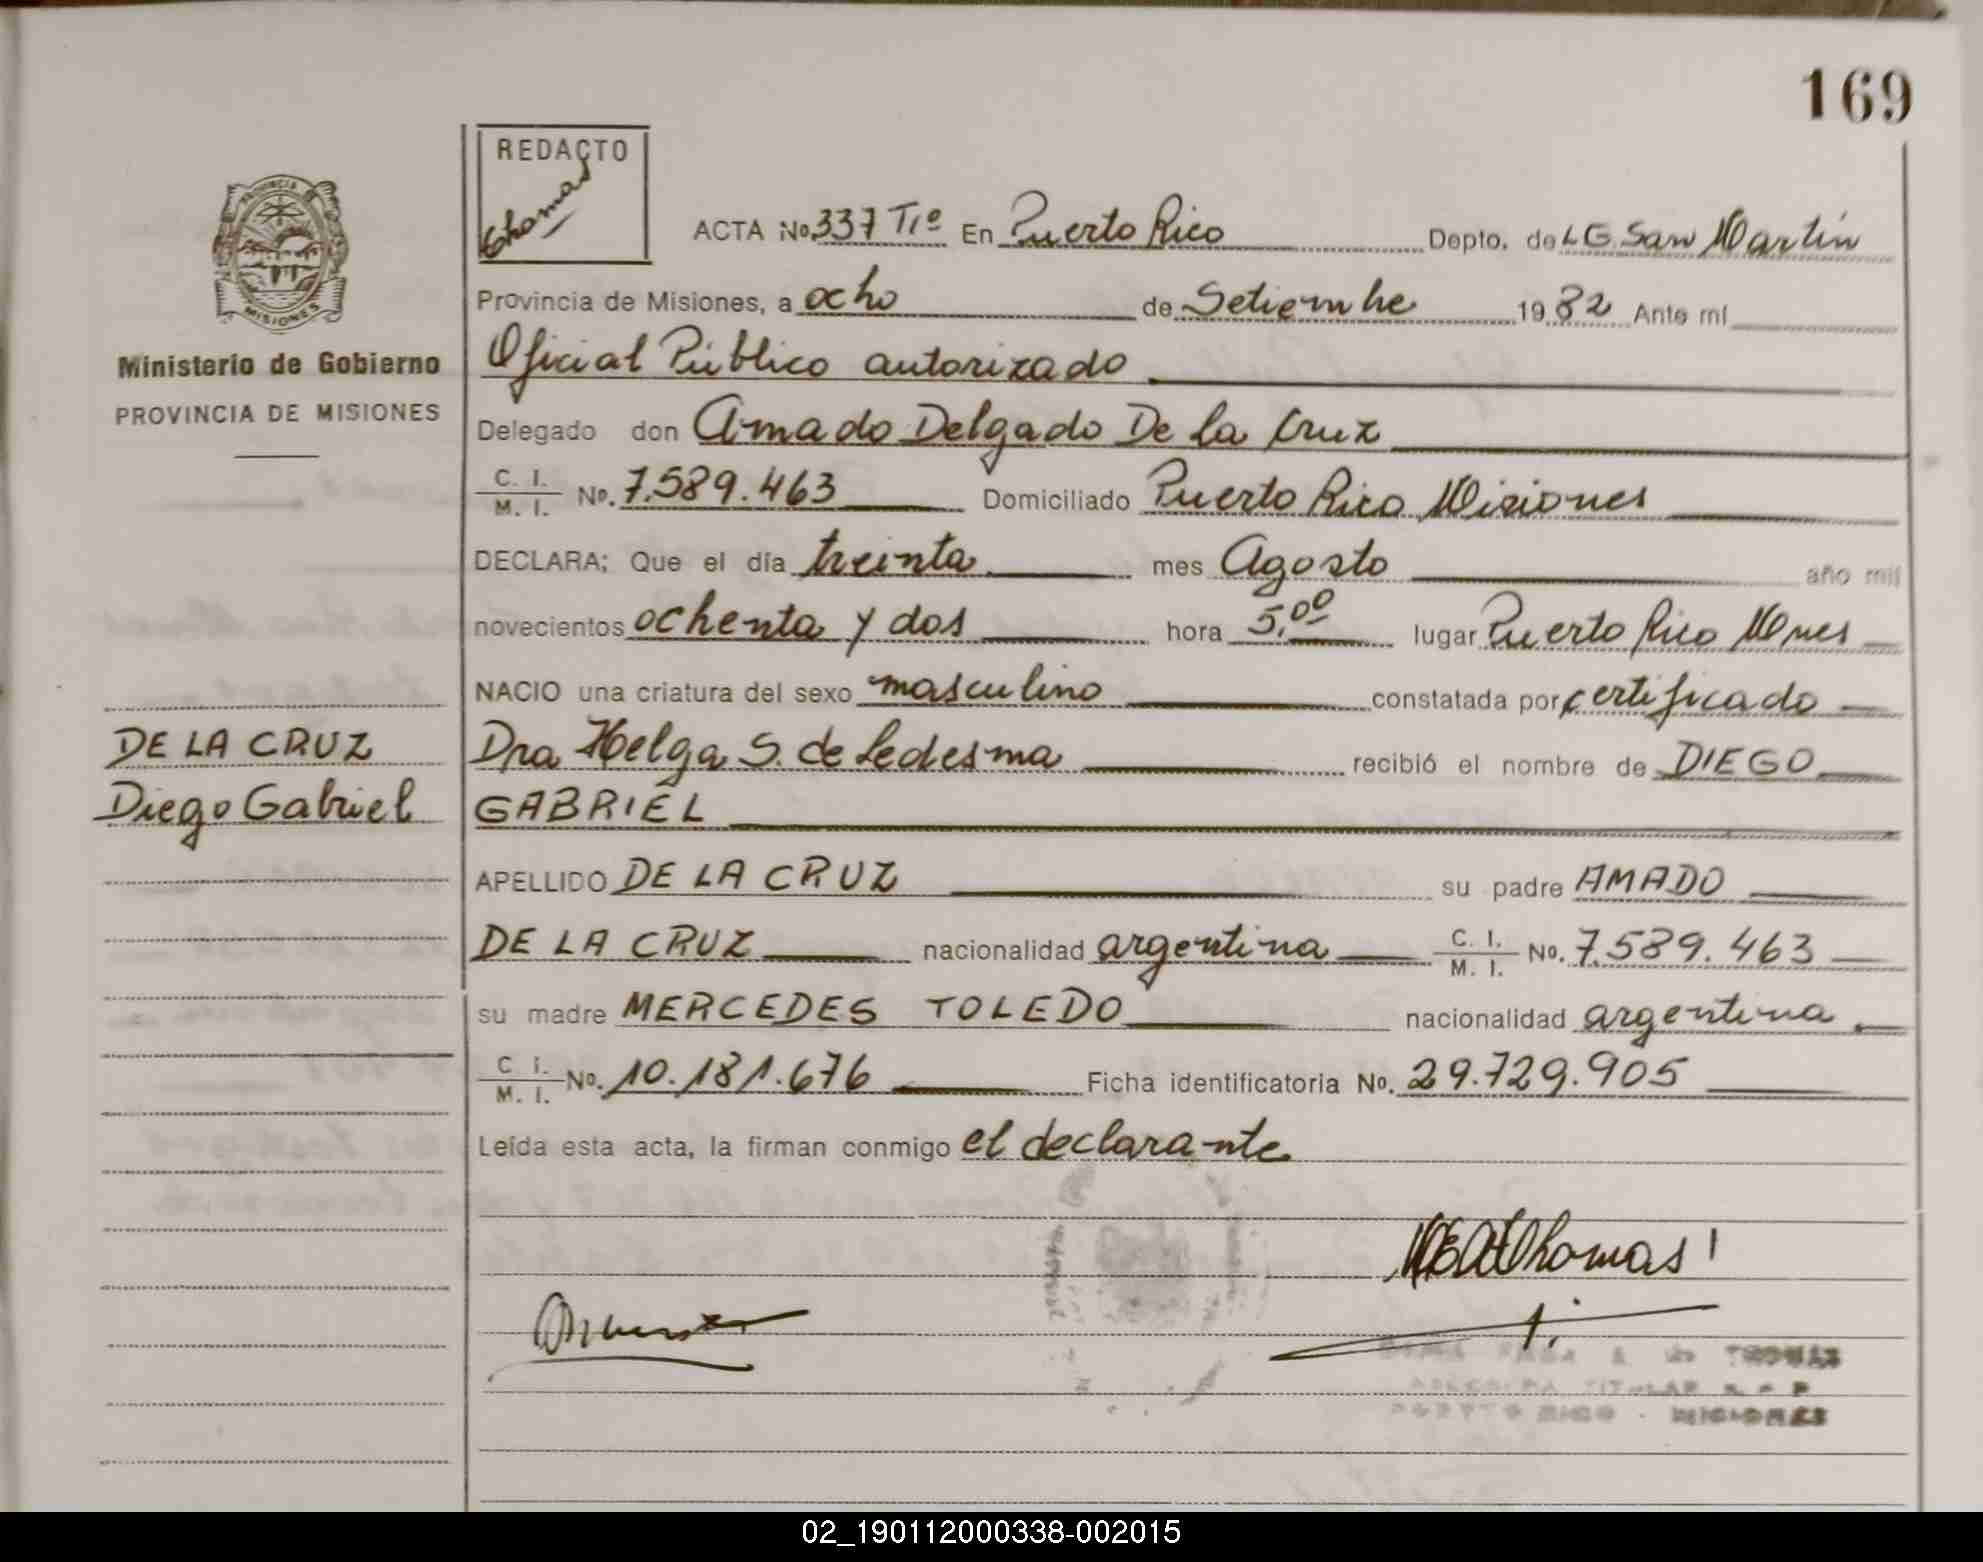 169
REDACTO
Thomas
ACTA No. 337 TIº En Puerto Rico Depto. de L G. San Martín
PROVINCIA
MISIONES
Provincia de Misiones, a ocho de Setiembre 1982 Ante mí
Ministerio de Gobierno
PROVINCIA DE MISIONES
Oficial Público autorizado
Delegado don Amado Delgado De la Cruz
C. I.
M. I. No. 7.589.463 Domiciliado Puerto Rico Misiones
DECLARA; Que el día treinta mes Agosto año mil
novecientos ochenta y dos hora 5,00 lugar Puerto Rico Mnes
NACIO una criatura del sexo masculino constatada por certificado
DE LA CRUZ
Diego Gabriel
Dra Helga S. de Ledesma recibió el nombre de DIEGO
GABRIEL
APELLIDO DE LA CRUZ su padre AMADO
DE LA CRUZ nacionalidad argentina C. I.
M. I. No. 7.589.463
su madre MERCEDES TOLEDO nacionalidad argentina
C. I.
M. I. No. 10.181.676 Ficha identificatoria No. 29.729.905
Leída esta acta, la firman conmigo el declarante
Thomas
THOMAS
TITULAR
PUERTO RICO - MISIONES
02_190112000338-002015